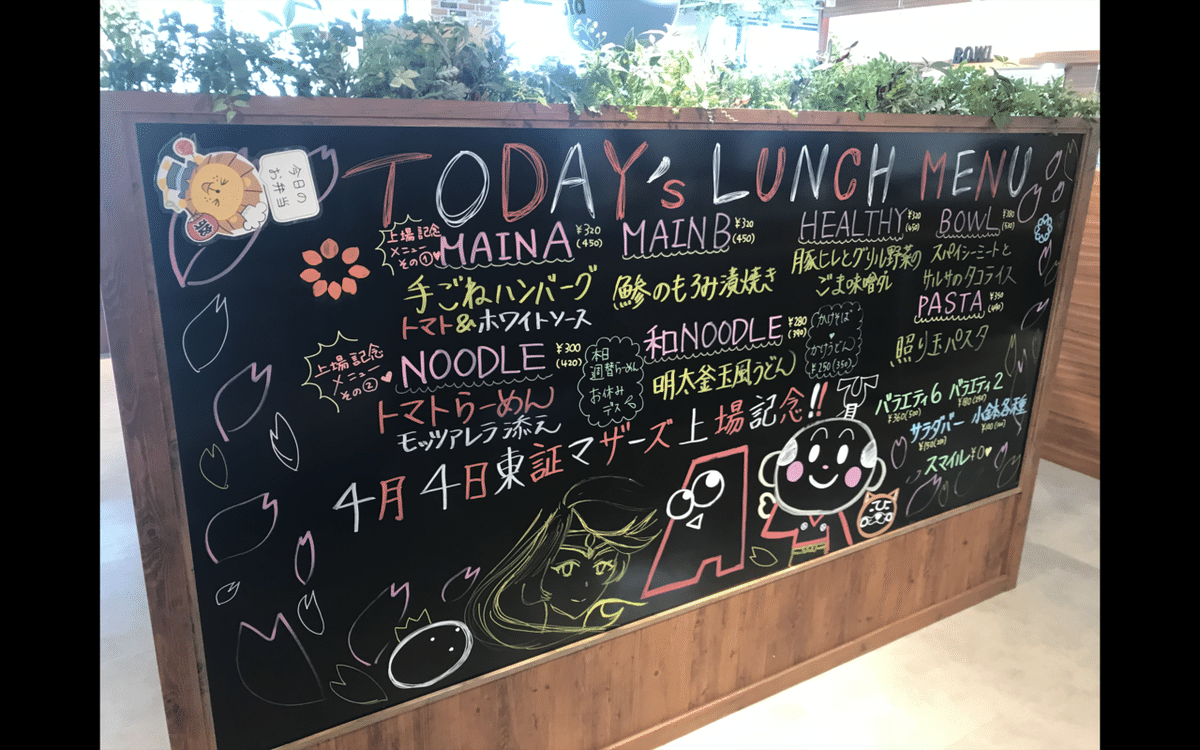 BOWL
今日の
お弁当
TODAY's LUNCH MENU
上場記念
メニュー
その①♥
MAIN A ¥320
(450)
手ごねハンバーグ
トマト&ホワイトソース
MAIN B ¥320
(450)
鯵のもろみ漬焼き
HEALTHY ¥320
(450)
豚ヒレとグリル野菜の
ごま味噌ダレ
BOWL ¥380
(530)
スパイシーミートと
サルサのタコライス
上場記念
メニュー
その②♥
NOODLE ¥300
(420)
トマトらーめん
モッツァレラ添え
本日
週替らーめん
お休み
デス
和NOODLE ¥280
(390)
明太釜玉風うどん
かけそば
♥
かけうどん
¥250(350)
PASTA ¥350
(490)
照り玉パスタ
バラエティ6 バラエティ2
¥360(500) ¥180(250)
サラダバー 小鉢各種
¥150
スマイル¥0♥
4月4日東証マザーズ上場記念!!